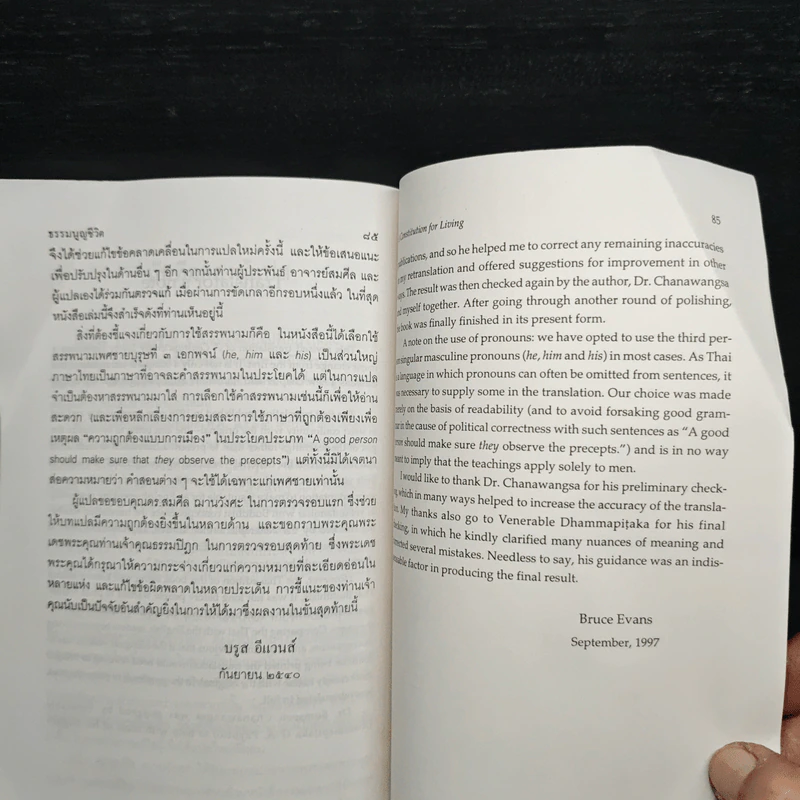 ธรรมนูญชีวิต ๘๕
จึงได้ช่วยแก้ไขข้อคลาดเคลื่อนในการแปลใหม่ครั้งนี้ และให้ข้อเสนอแนะ
เพื่อปรับปรุงในด้านอื่น ๆ อีก จากนั้นท่านผู้ประพันธ์ อาจารย์สมศีล และ
ผู้แปลเองได้ร่วมกันตรวจแก้ เมื่อผ่านการขัดเกลาอีกรอบหนึ่งแล้ว ในที่สุด
หนังสือเล่มนี้จึงสำเร็จดังที่ท่านเห็นอยู่นี้
สิ่งที่ต้องชี้แจงเกี่ยวกับการใช้สรรพนามก็คือ ในหนังสือนี้ได้เลือกใช้
สรรพนามเพศชายบุรุษที่ ๓ เอกพจน์ (he, him และ his) เป็นส่วนใหญ่
ภาษาไทยเป็นภาษาที่อาจละคำสรรพนามในประโยคได้ แต่ในการแปล
จำเป็นต้องหาสรรพนามมาใส่ การเลือกใช้คำสรรพนามเช่นนี้ก็เพื่อให้อ่าน
สะดวก (และเพื่อหลีกเลี่ยงการยอมสละการใช้ภาษาที่ถูกต้องเพียงเพื่อ
เหตุผล “ความถูกต้องแบบการเมือง” ในประโยคประเภท “A good person
should make sure that they observe the precepts”) แต่ทั้งนี้มิได้เจตนา
สื่อความหมายว่า คำสอนต่าง ๆ จะใช้ได้เฉพาะแก่เพศชายเท่านั้น
ผู้แปลขอขอบคุณดร.สมศีล ฌานวังศะ ในการตรวจรอบแรก ซึ่งช่วย
ให้บทแปลมีความถูกต้องยิ่งขึ้นในหลายด้าน และขอกราบพระคุณพระ
เดชพระคุณท่านเจ้าคุณธรรมปิฎก ในการตรวจรอบสุดท้าย ซึ่งพระเดช
พระคุณได้กรุณาให้ความกระจ่างเกี่ยวแก่ความหมายที่ละเอียดอ่อนใน
หลายแห่ง และแก้ไขข้อผิดพลาดในหลายประเด็น การชี้แนะของท่านเจ้า
คุณนับเป็นปัจจัยอันสำคัญยิ่งในการให้ได้มาซึ่งผลงานในขั้นสุดท้ายนี้
บรูส อีแวนส์
กันยายน ๒๕๔๐
Constitution for Living 85
and so he helped me to correct any remaining inaccuracies
my retranslation and offered suggestions for improvement in other
The result was then checked again by the author, Dr. Chanawangsa
myself together. After going through another round of polishing,
book was finally finished in its present form.
A note on the use of pronouns: we have opted to use the third per-
singular masculine pronouns (he, him and his) in most cases. As Thai
language in which pronouns can often be omitted from sentences, it
necessary to supply some in the translation. Our choice was made
on the basis of readability (and to avoid forsaking good gram-
in the cause of political correctness with such sentences as “A good
should make sure they observe the precepts.”) and is in no way
to imply that the teachings apply solely to men.
I would like to thank Dr. Chanawangsa for his preliminary check-
which in many ways helped to increase the accuracy of the transla-
My thanks also go to Venerable Dhammapiṭaka for his final
in which he kindly clarified many nuances of meaning and
several mistakes. Needless to say, his guidance was an indis-
factor in producing the final result.
Bruce Evans
September, 1997